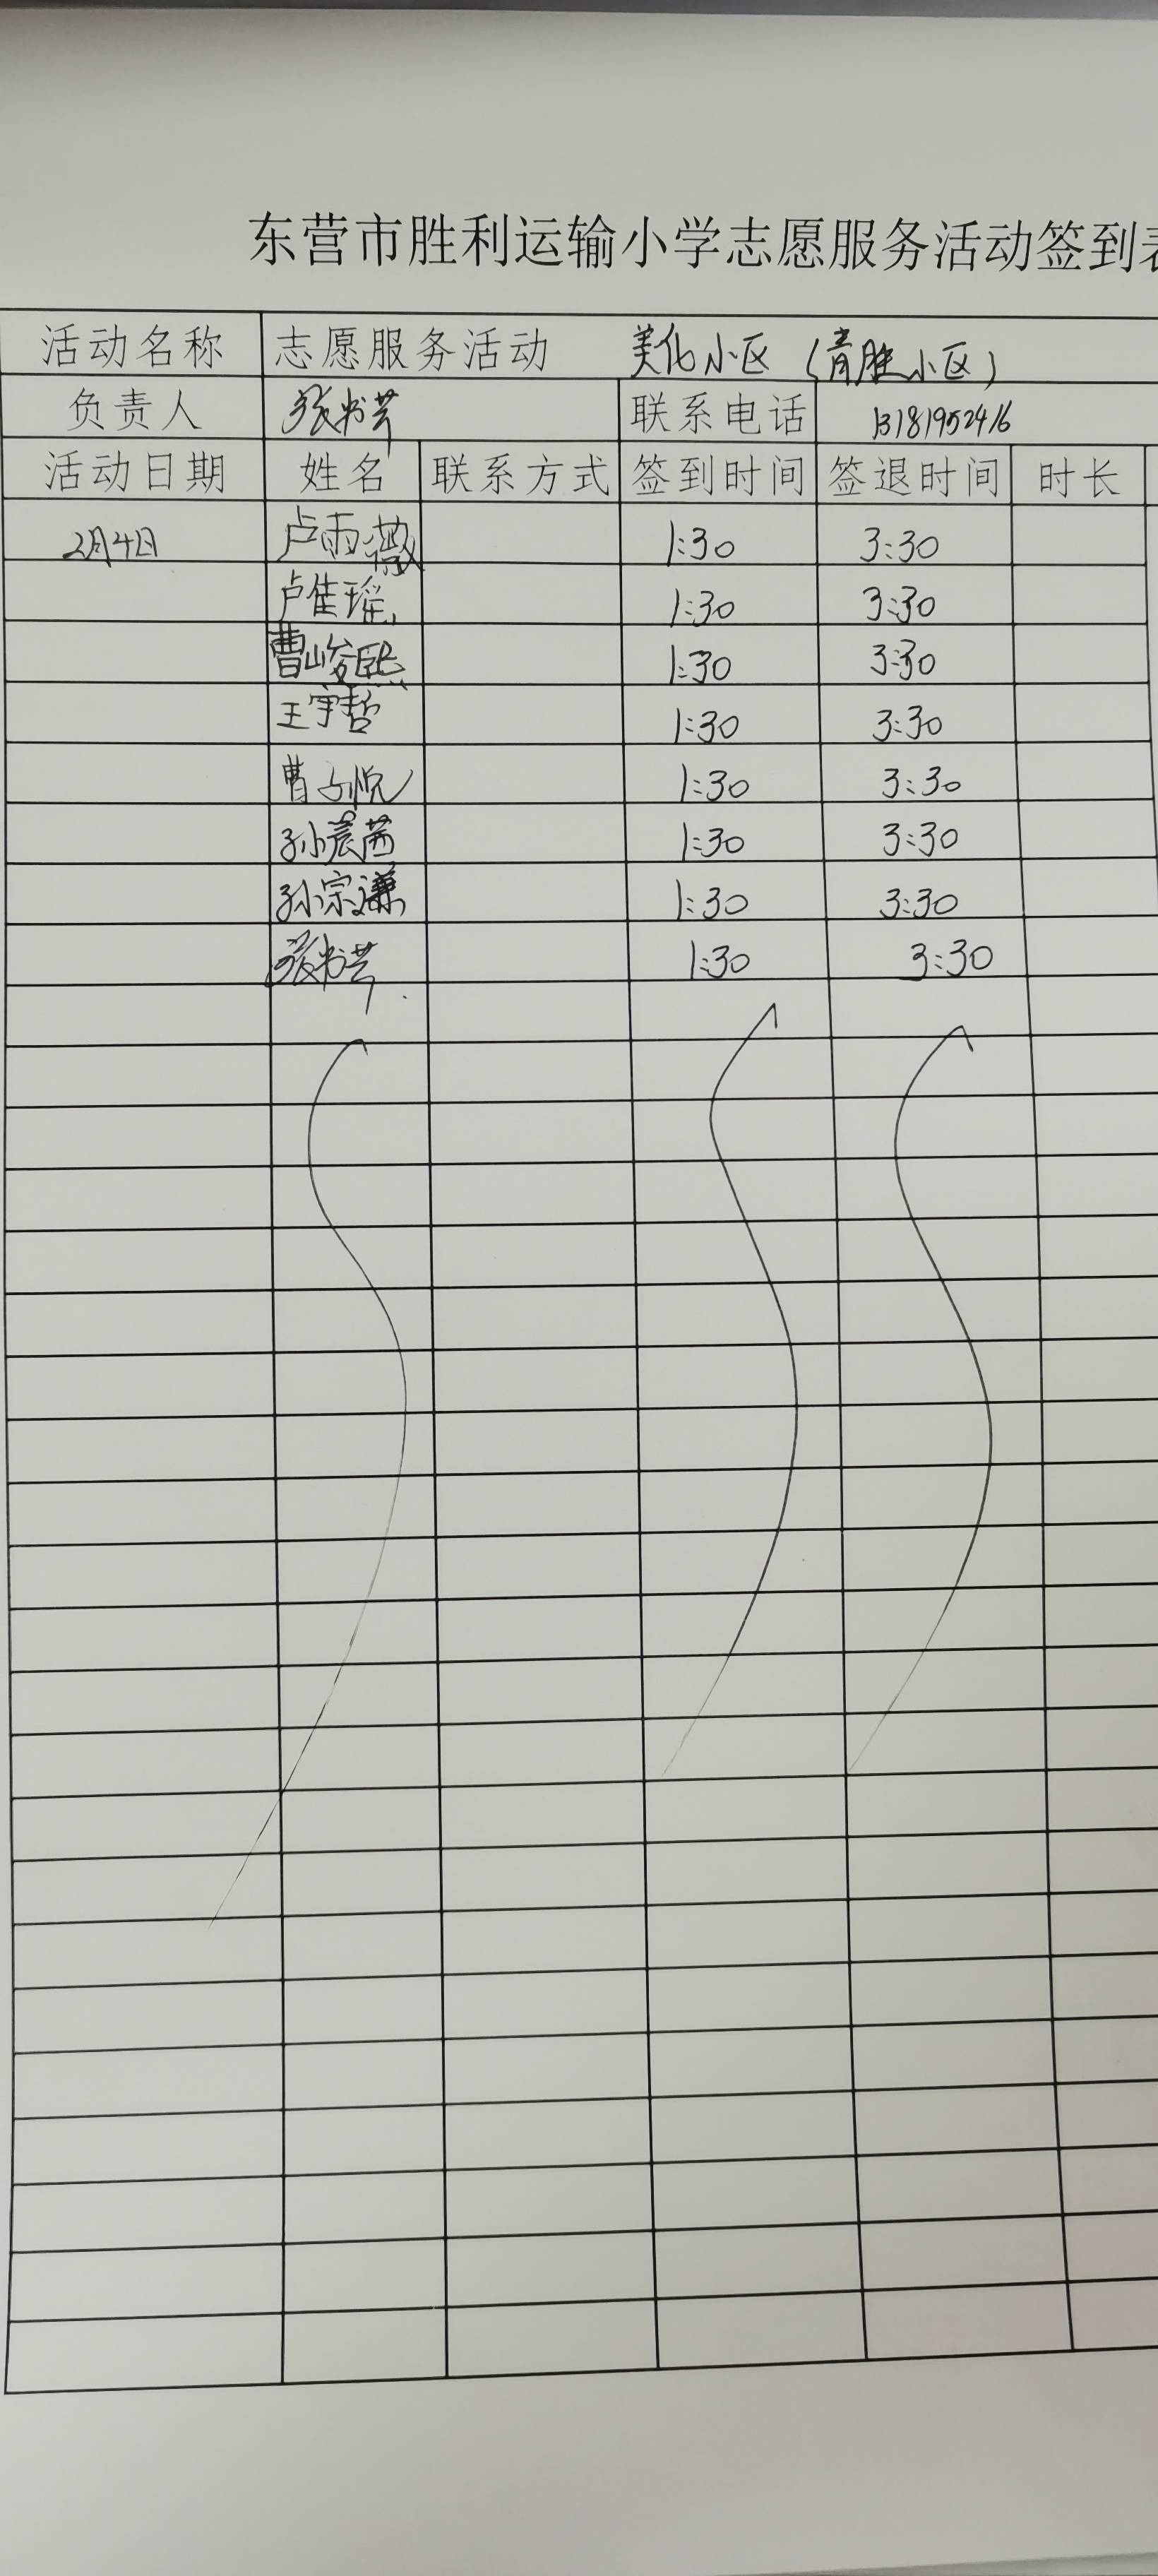 东营市胜利运输小学志愿服务活动签到表
活动名称 志愿服务活动 美化小区（青胜小区）
负责人 张书芹 联系电话 13181952416
活动日期 姓名 联系方式 签到时间 签退时间 时长
2月4日 卢雨薇 1:30 3:30
卢佳瑶 1:30 3:30
曹峻熙 1:30 3:30
王宇哲 1:30 3:30
曹子悦 1:30 3:30
孙晨茜 1:30 3:30
孙宗谦 1:30 3:30
张书芹 1:30 3:30